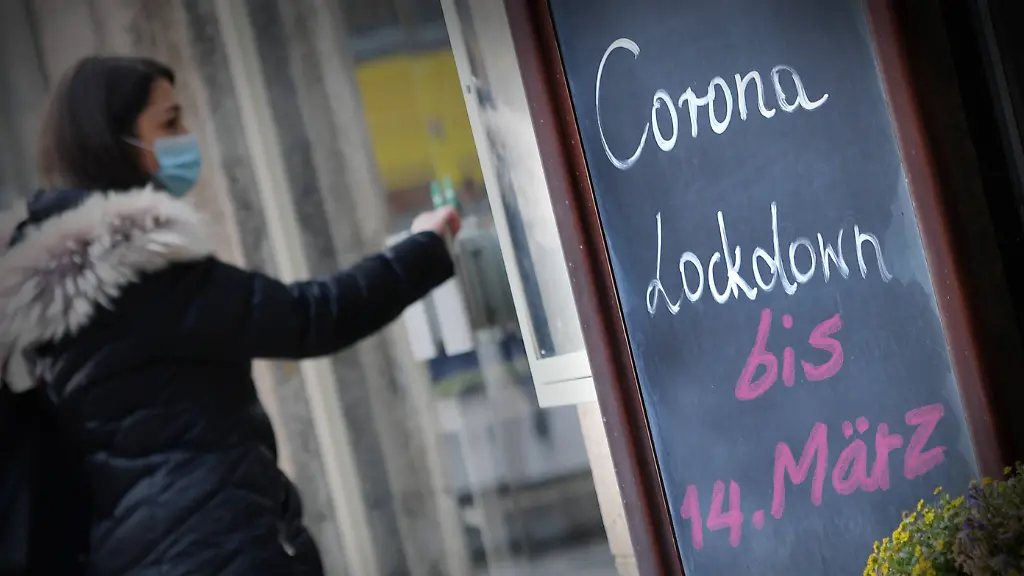 Corona
Lockdown
bis
14. März